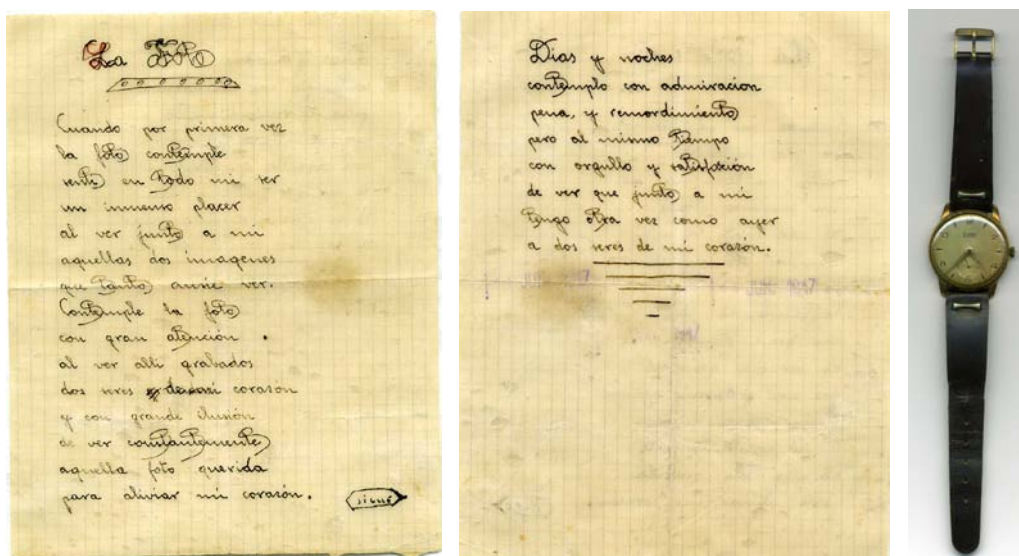 La Foto
Cuando por primera vez
la foto contemple
senti en todo mi ser
un inmenso placer
al ver junto a mi
aquellas dos imagenes
que tanto ansie ver.
Contemple la foto
con gran atención.
al ver alli grabados
dos seres de mi corazón
y con grande ilusión
de ver constantemente
aquella foto querida
para aliviar mi corazón.
sigue
Dias y noches
contemplo con admiracion
pena, y remordimiento
pero al mismo tiempo
con orgullo y satisfacción
de ver que junto a mi
tengo otra vez como ayer
a dos seres de mi corazón.